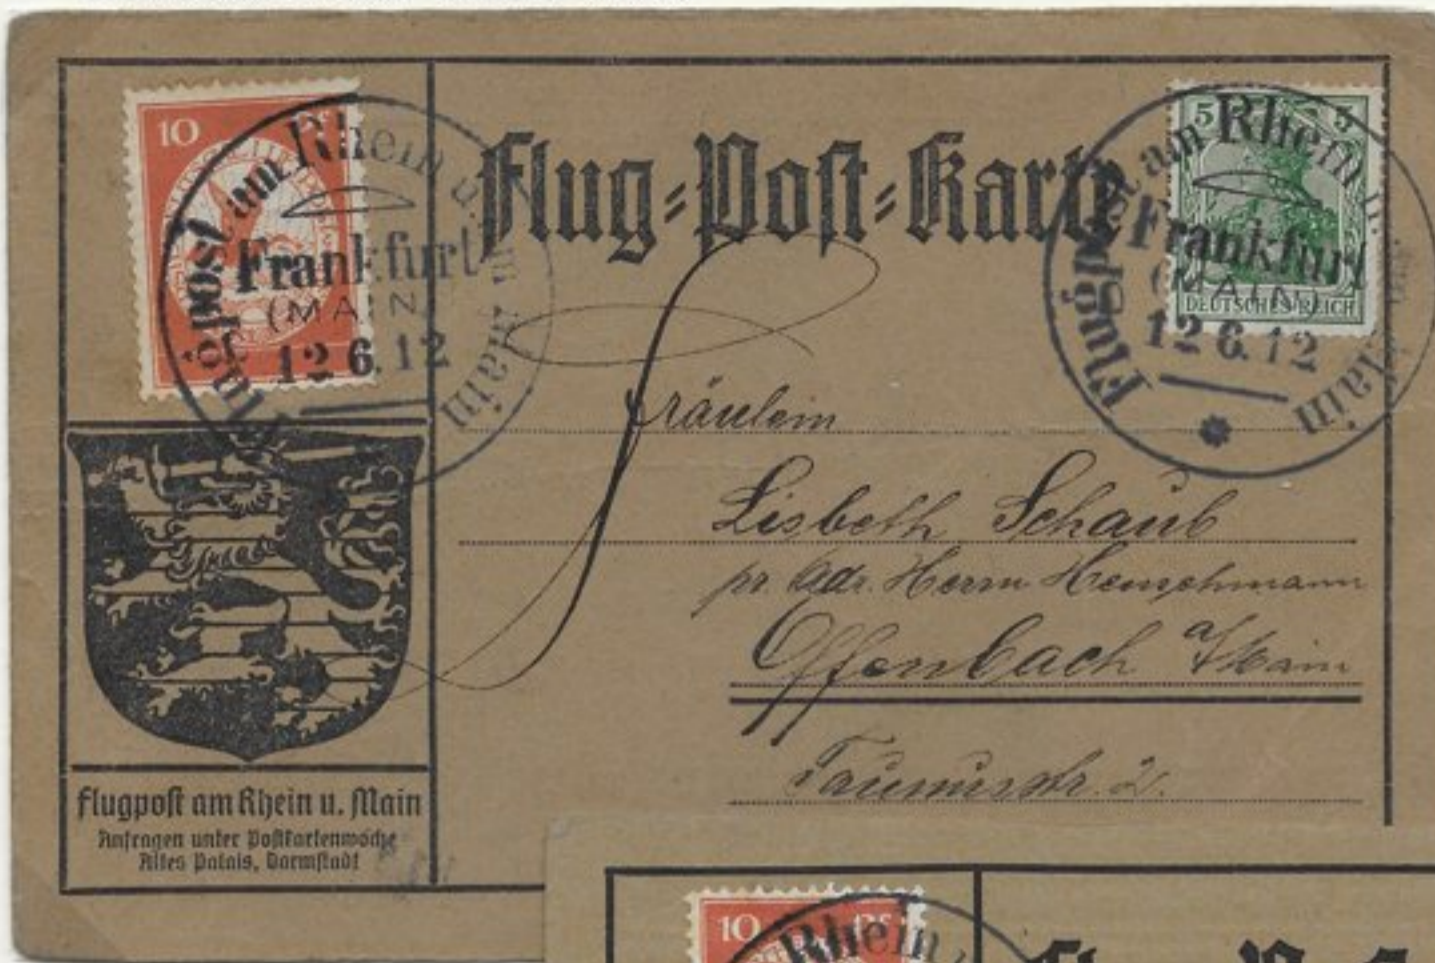 10 Pf
Flugpost am Rhein u. Main
Frankfurt
(MAIN)
12.6.12
Flug=Post=Karte
5 5
DEUTSCHES REICH
Flugpost am Rhein u. Main
Frankfurt
(MAIN)
12.6.12
Fräulein
Lisbeth Schaub
pr. Adr. Herrn
Offenbach a/Main
Taunusstr. 2.
Flugpost am Rhein u. Main
Anfragen unter Postkartenwoche
Altes Palais, Darmstadt
10 Pf
Rhein